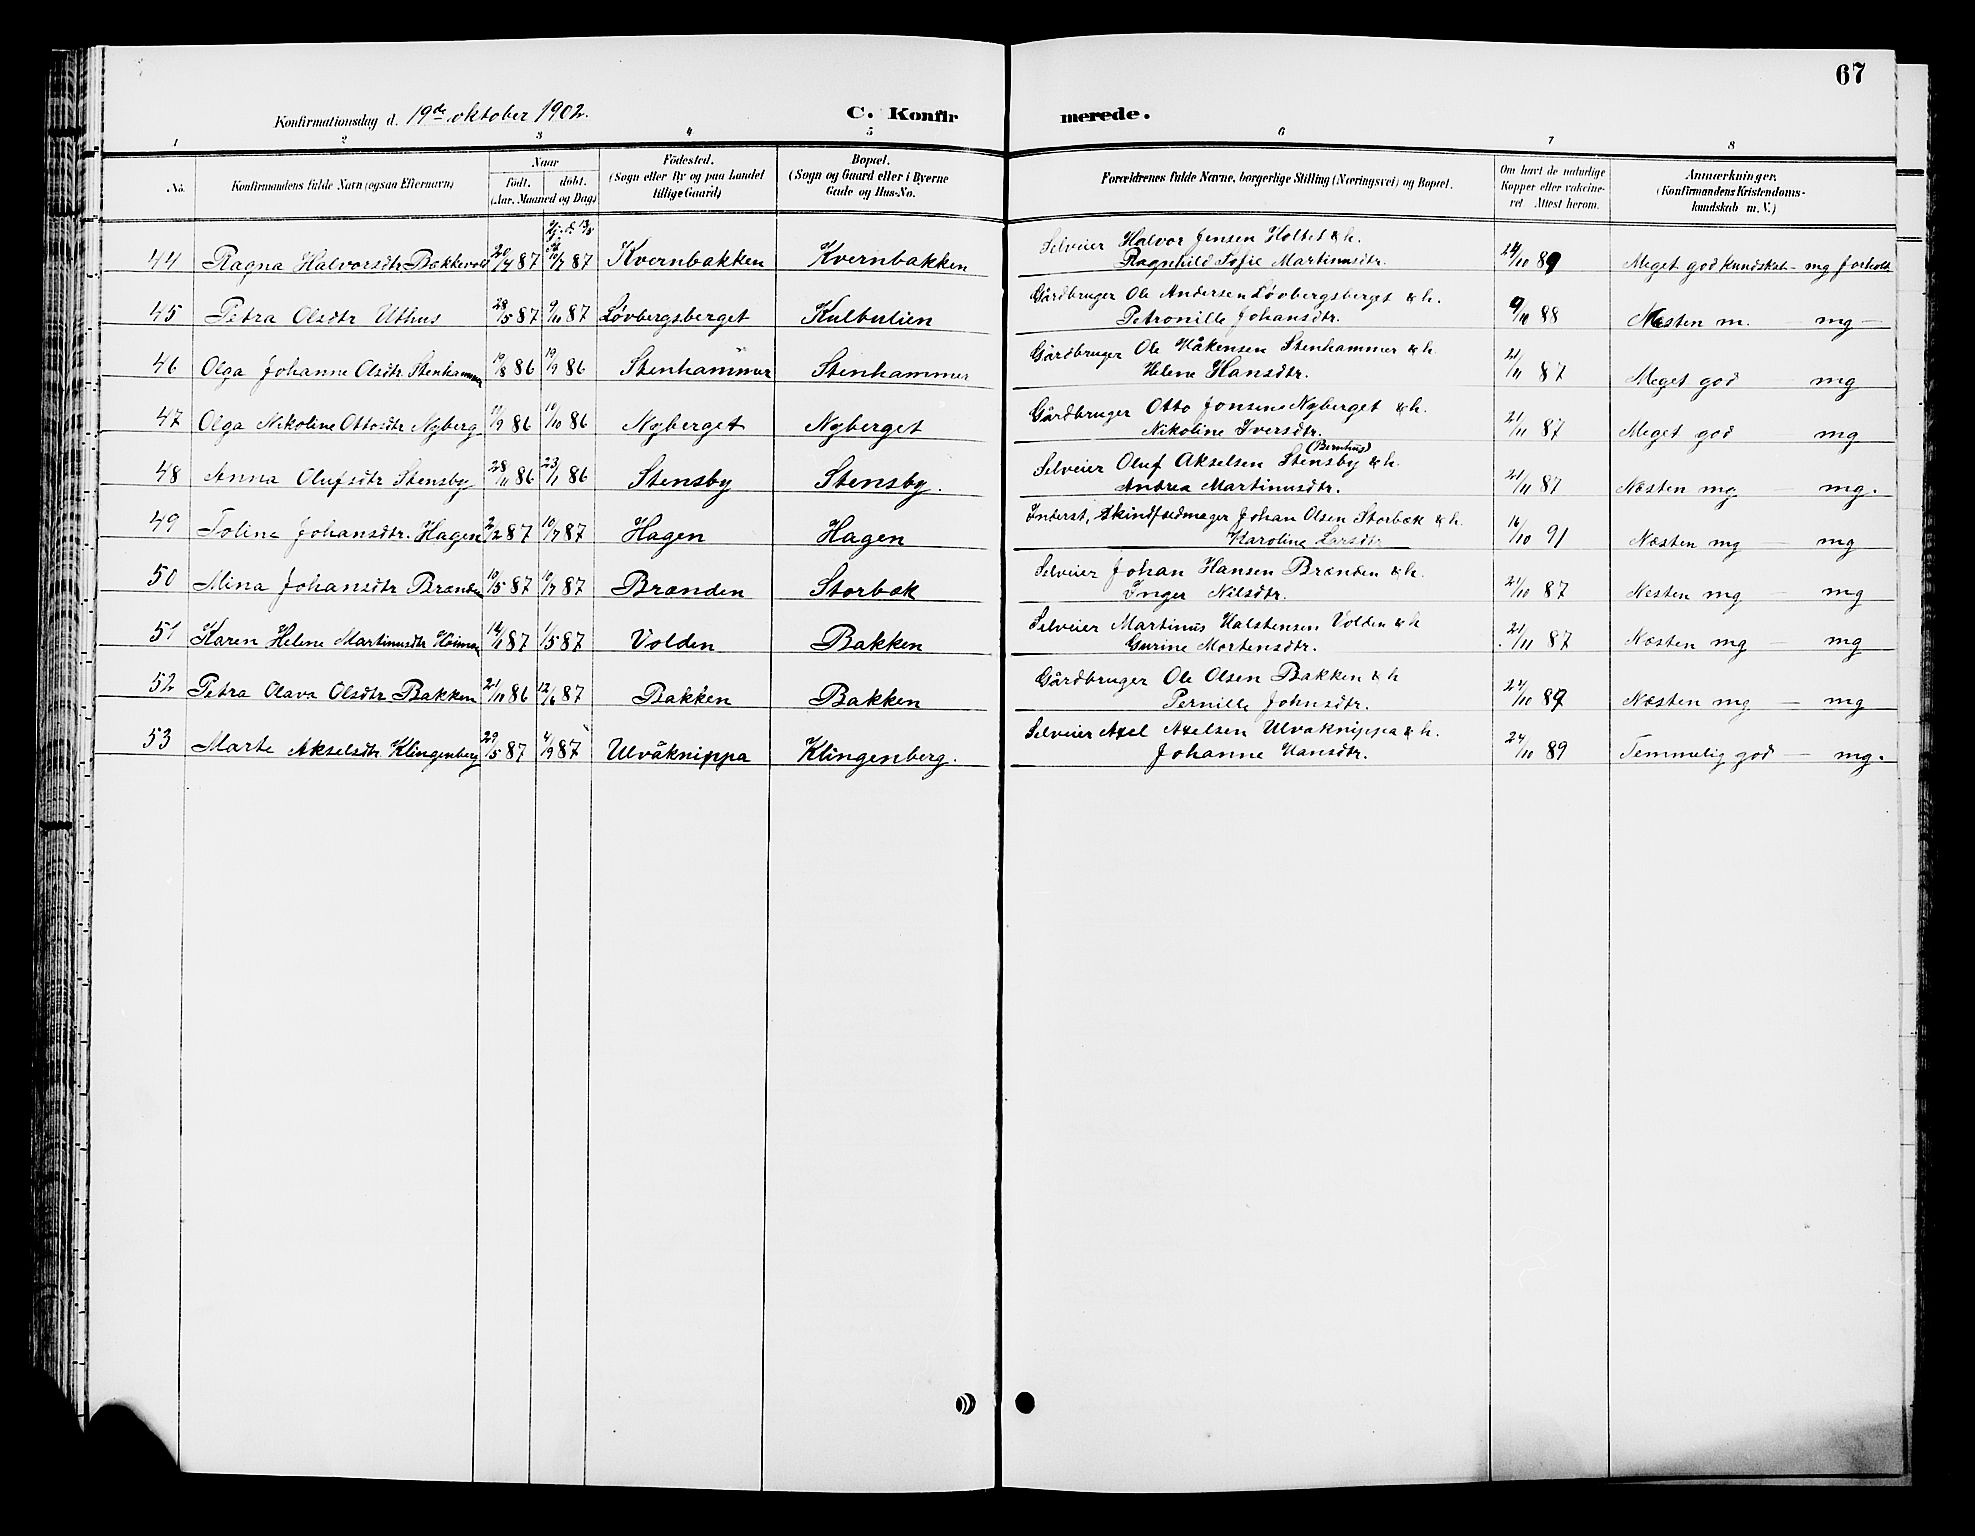 67
Konfirmationsdag d. 19de oktober 1902.
C. Konfir merede.
1 2 3 4 5 6 7 8
No.
Konfirmandens fulde Navn (ogsaa Efternavn)
Naar
født. døbt.
(Aar, Maaned og Dag)
Födested.
(Sogn eller By og paa Landet
tillige Gaard)
Bopæl.
(Sogn og Gaard eller i Byerne
Gade og Hus-No.
Forældrenes fulde Navne, borgerlige Stilling (Næringsvei) og Bopæl.
Om havt de naturlige
Kopper eller vakcine-
ret Attest herom.
Anmærkninger.
(Konfirmandens Kristendoms-
kundskab m. V.)
44 Ragna Halvorsdtr Bakkevold 20/4 87 10/7 87 Kvernbakken Kvernbakken Selveier Halvor Jensen Holtet & h. 24/10 89 Meget god kundskab - mg forhold
Ragnhild Sofie Martinusdtr.
45 Petra Olsdtr Uthus 28/5 87 9/10 87 Løvbergsberget Kulbulien Gårdbruger Ole Andersen Løvbergsberget & h. 9/11 88 Næsten m. mg —
Petronille Johansdtr.
46 Olga Johanne Olsdtr Stenhammer 19/8 86 19/9 86 Stenhammer Stenhammer Gårdbruger Ole Håkensen Stenhammer & h. 21/11 87 Meget god — mg
Helene Hansdtr.
47 Olga Nikoline Ottosdtr Nyberg 11/9 86 10/10 86 Nyberget Nyberget Gårdbruger Otto Jonsen Nyberget & h. 21/11 87 Meget god mg
Nikoline Iversdtr.
(Bernhus)
48 Anna Olufsdtr Stensby 28/11 86 23/1 86 Stensby Stensby. Selveier Oluf Akselsen Stensby & h. 21/11 87 Næsten mg — mg.
Andrea Martinusdtr.
49 Toline Johansdtr. Hagen 2/2 87 10/7 87 Hagen Hagen Inderst, Skindfedmager Johan Olsen Storbæk & h. 16/10 91 Næsten mg — mg
Karoline Larsdtr
50 Mina Johansdtr Brænden 10/5 87 10/7 87 Brænden Storbæk Selveier Johan Hansen Brænden & h. 21/10 87 Næsten mg — mg
Inger Nilsdtr.
51 Karen Helene Martinusdtr 87 1/5 87 Volden Bakken Selveier Martinus Halstensen Volden & h 21/11 87 Næsten mg — mg
Gurine Mortensdtr.
52 Petra Olava Olsdtr Bakken 21/11 86 12/6 87 Bakken Bakken Gårdbruger Ole Olsen Bakken & h 24/10 89 Næsten mg — mg
Pernille Johnsdtr.
53 Marte Akselsdtr Klingenberg 29/5 87 4/9 87 Ulvåknippa Klingenberg. Selveier Axel Axelsen Ulvaknippa & h. 24/10 89 Temmelig god — mg.
Johanne Hansdtr.